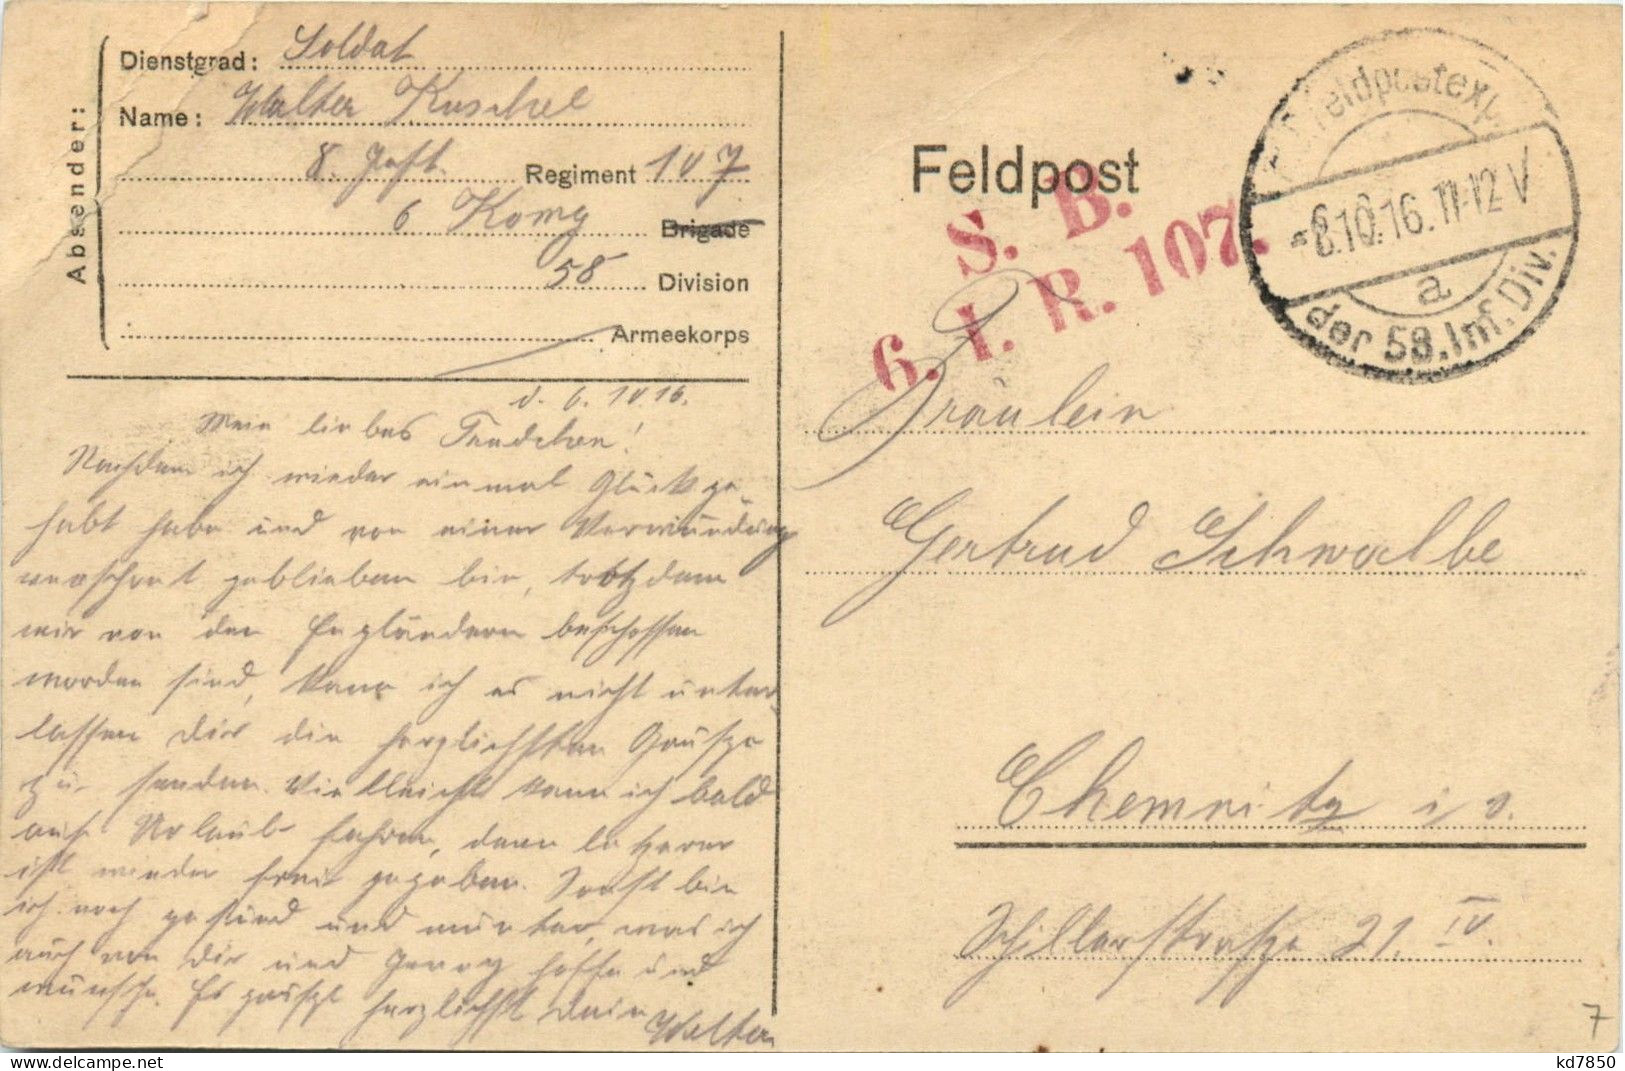 Absender:
Dienstgrad: Soldat
Name: Walter Kuschel
8. Inft. Regiment 107
6 Komg Brigade
58 Division
Armeekorps
d. 6.10.16.
Mein liebes Trudchen!
Nachdem ich wieder einmal Glück ge-
habt habe und von einer Verwundung
verschont geblieben bin, trotzdem
wir von den Engländern beschossen
worden sind, kann ich es nicht unter-
lassen Dir die herzlichsten Grüße
zu senden. Vielleicht kann ich bald
auf Urlaub fahren, denn letzerer
ist wieder frei gegeben. Sonst bin
ich noch gesund und munter, was ich
auch von Dir und Georg hoffe und
wünsche. Es grüßt herzlichst Dein Walter
Feldpost
S. B.
6. I. R. 107.
Feldpostexp.
8.10.16. 11-12 V
a
der 58. Inf. Div.
Fräulein
Gertrud Schwalbe
Chemnitz i/S.
Schillerstraße 21. IV.
7
www.delcampe.net
kd7850